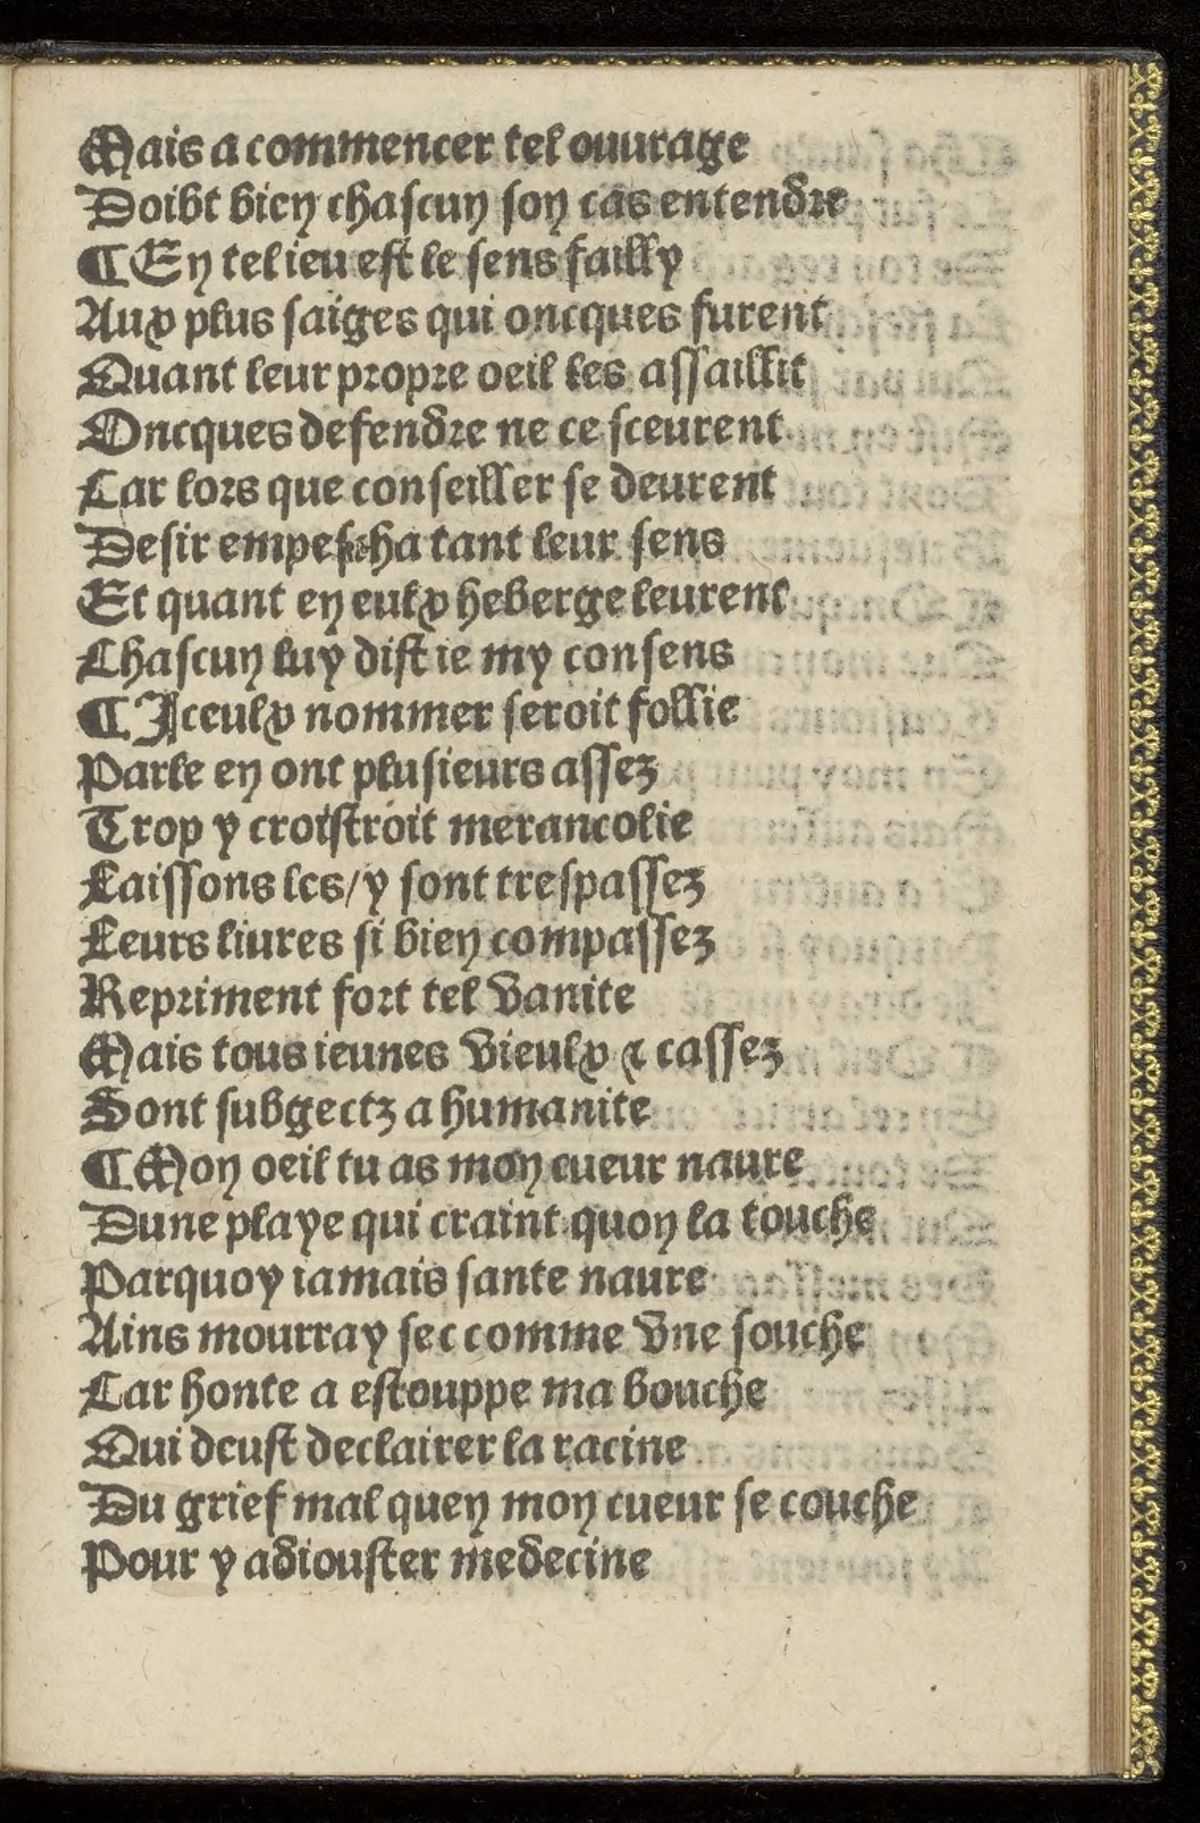 Mais a commencer tel ouurage
Doibt bien chascun son cas entendre
¶ En tel ieu est le sens failly
Aux plus saiges qui oncques furent
Quant leur propre oeil les assaillit
Oncques defendre ne ce sceurent
Car lors que conseiller se deurent
Desir empescha tant leur sens
Et quant en eulx heberge leurent
Chascun luy dist ie my consens
¶ Iceulx nommer seroit follie
Parle en ont plusieurs assez
Trop y croistroit merancolie
Laissons les/y sont trespassez
Leurs liures si bien compassez
Repriment fort tel vanite
Mais tous ieunes vieulx ⁊ cassez
Sont subgectz a humanite
¶ Mon oeil tu as mon cueur naure
Dune playe qui craint quon la touche
Parquoy iamais sante naure
Ains mourray sec comme vne souche
Car honte a estouppe ma bouche
Qui deust declairer la racine
Du grief mal quen mon cueur se couche
Pour y adiouster medecine